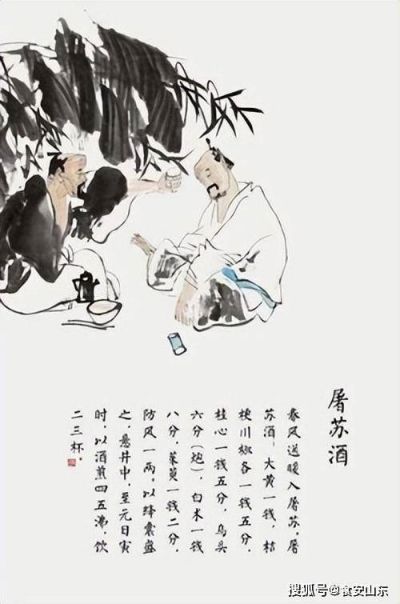 屠苏酒
春风送暖入屠苏，屠
苏酒：大黄一钱，桔
梗川椒各一钱五分，
桂心一钱五分，乌头
六分（炮），白术一钱
八分，茱萸一钱二分，
防风一两，以绛囊盛
之，悬井中，至元日寅
时，以酒煎四五沸，饮
二三杯。
搜狐号@食安山东